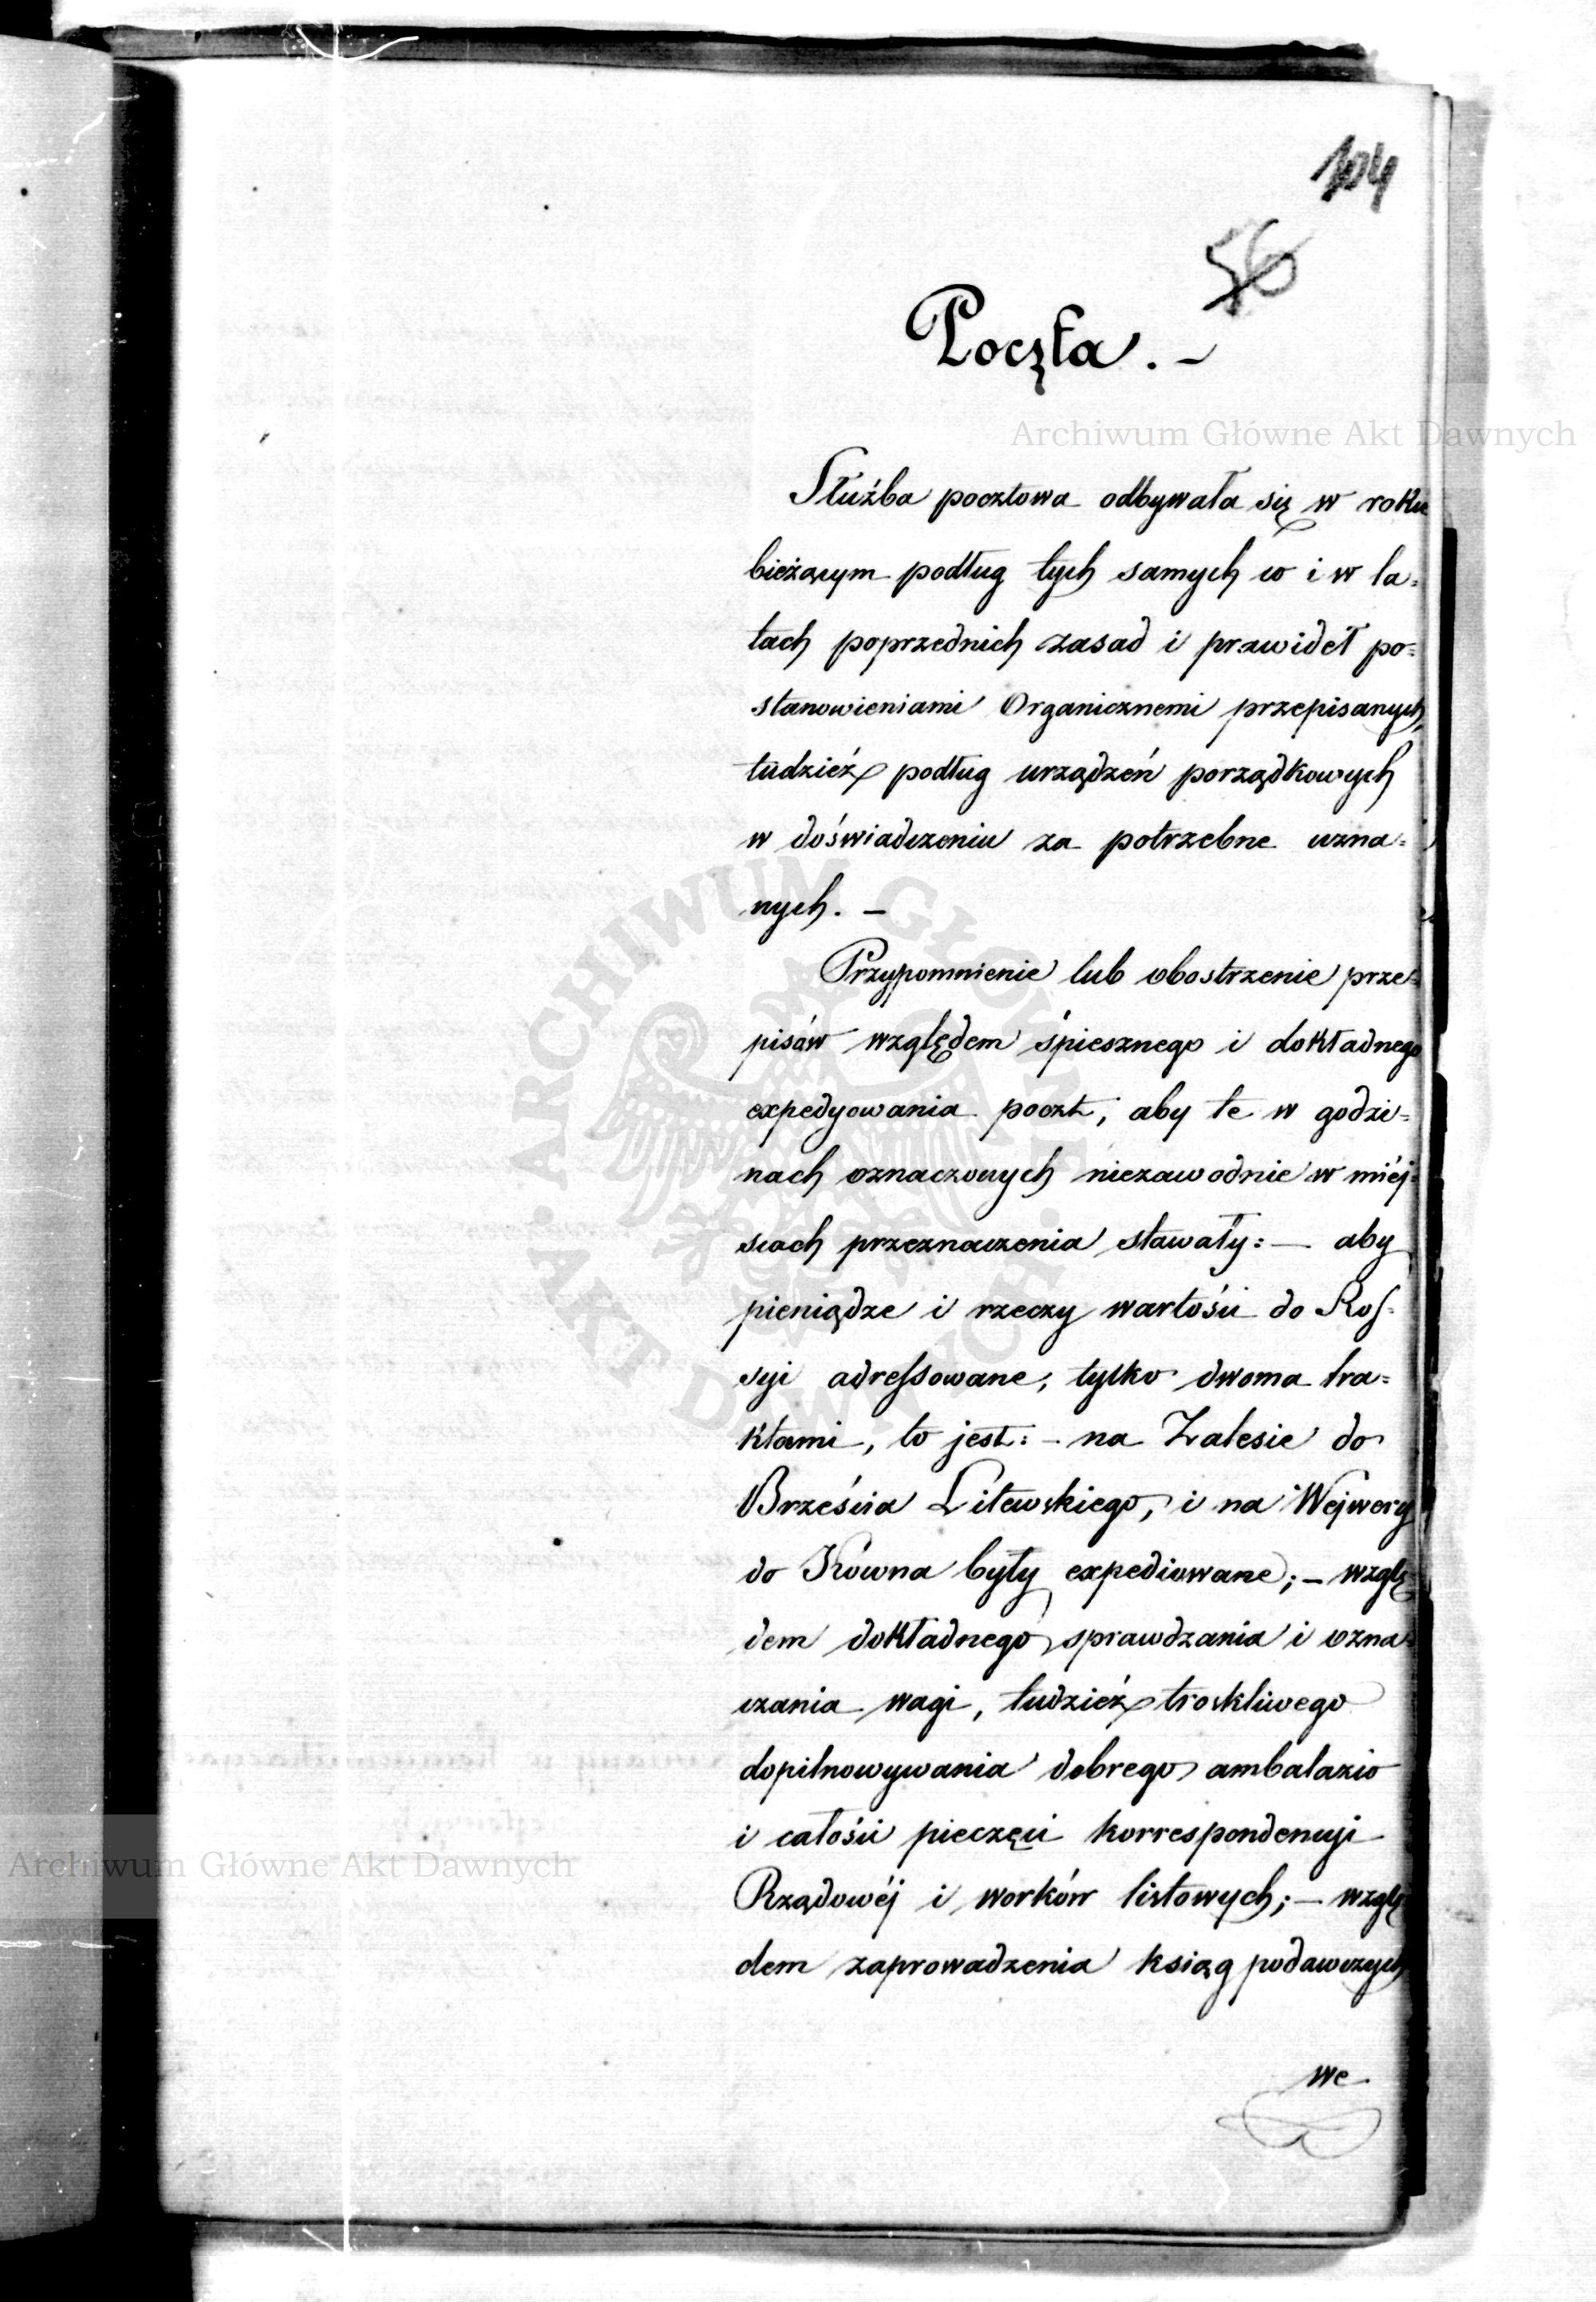 104
56
Poczta. –
Służba pocztowa odbywała się w roku
bieżącym podług tych samych co i w la=
tach poprzednich zasad i prawideł po=
stanowieniami Organicznemi przepisanych,
tudzież podług urządzeń porządkowych
w doświadczeniu za potrzebne uzna=
nych. –
Przypomnienie lub obostrzenie prze=
pisów względem śpiesznego i dokładnego
expedyowania poczt, aby te w godzi=
nach oznaczonych niezawodnie w miéj=
scach przeznaczenia stawały: – aby
pieniądze i rzeczy wartości do Ros=
syi adressowane, tylko dwoma tra=
ktami, to jest: – na Zalesie do
Brześcia Litewskiego, i na Wejwery
do Kowna były expediowane; – wzglę=
dem dokładnego sprawdzania i ozna=
czania wagi, tudzież troskliwego
dopilnowywania dobrego ambalazio
i całości pieczęci korrespondencyi
Rządowéj i worków listowych; – wzglę
dem zaprowadzenia ksiąg podawczych
we
Archiwum Główne Akt Dawnych
Archiwum Główne Akt Dawnych
ARCHIWUM GŁÓWNE · AKT DAWNYCH ·